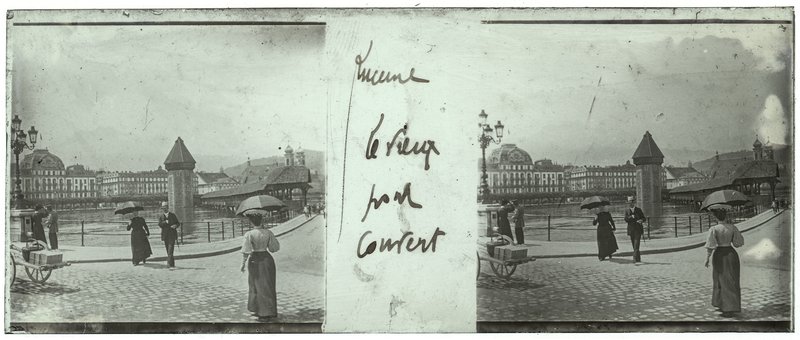 Lucerne
le vieux
pont
Couvert